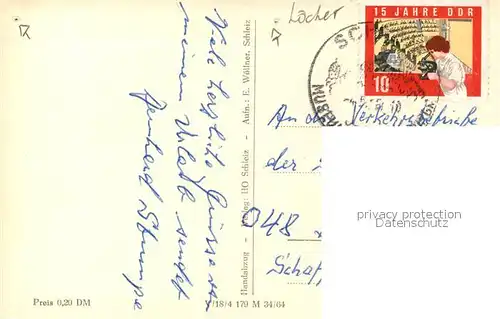 Löcher
15 JAHRE DDR
10
Viele herzliche Grüsse aus
meinem Urlaub sendet
Handabzug - Verlag: HO Schleiz - Aufn.: E. Wöllner, Schleiz
An die Verkehrsbetriebe
der
048
Schaf
privacy protection
Datenschutz
Preis 0,20 DM
V/18/4 179 M 34/64